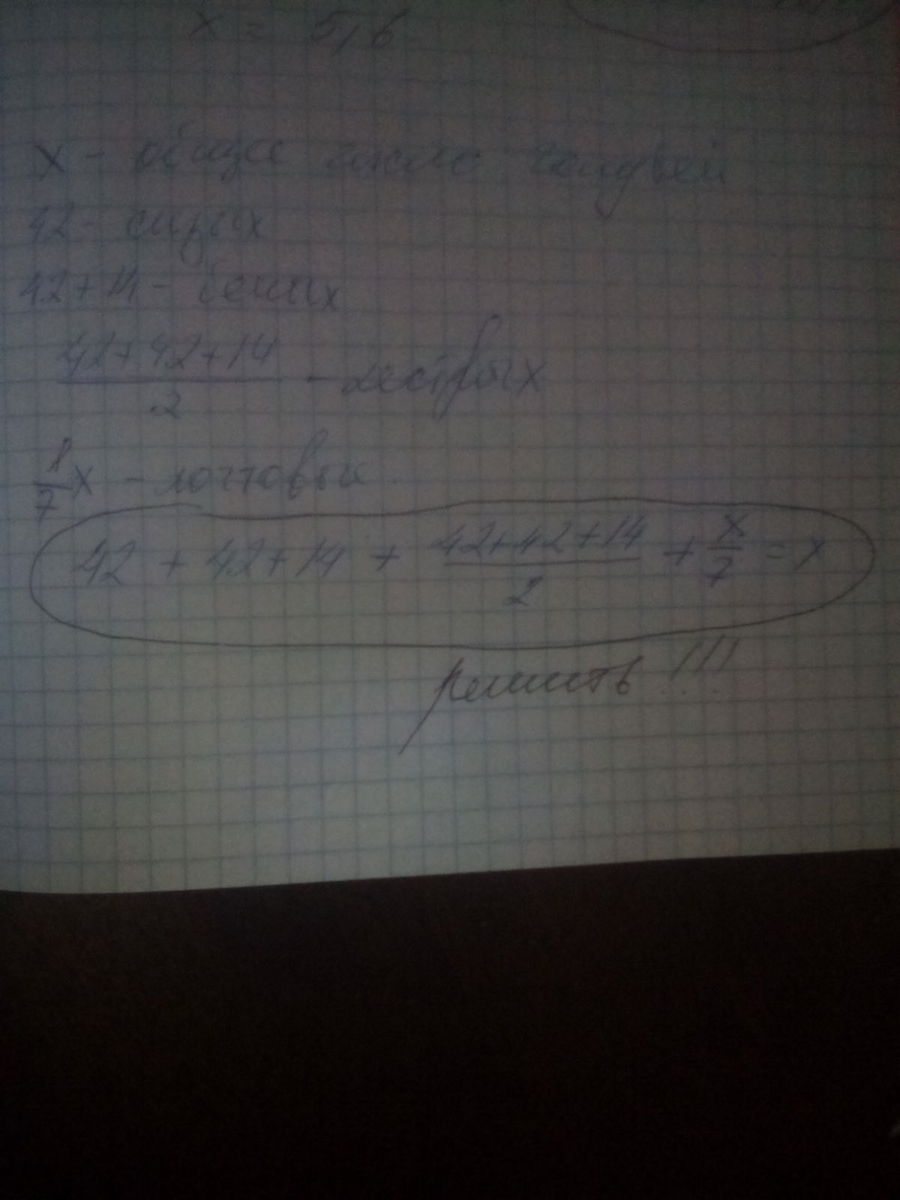 x = 5,6
x - общее число голубей
42 - сизых
42+14 - белых
42+42+14 / 2 - пестрых
1/7 x - почтовые
42 + 42+14 + 42+42+14 / 2 + x/7 = x
решить !!!